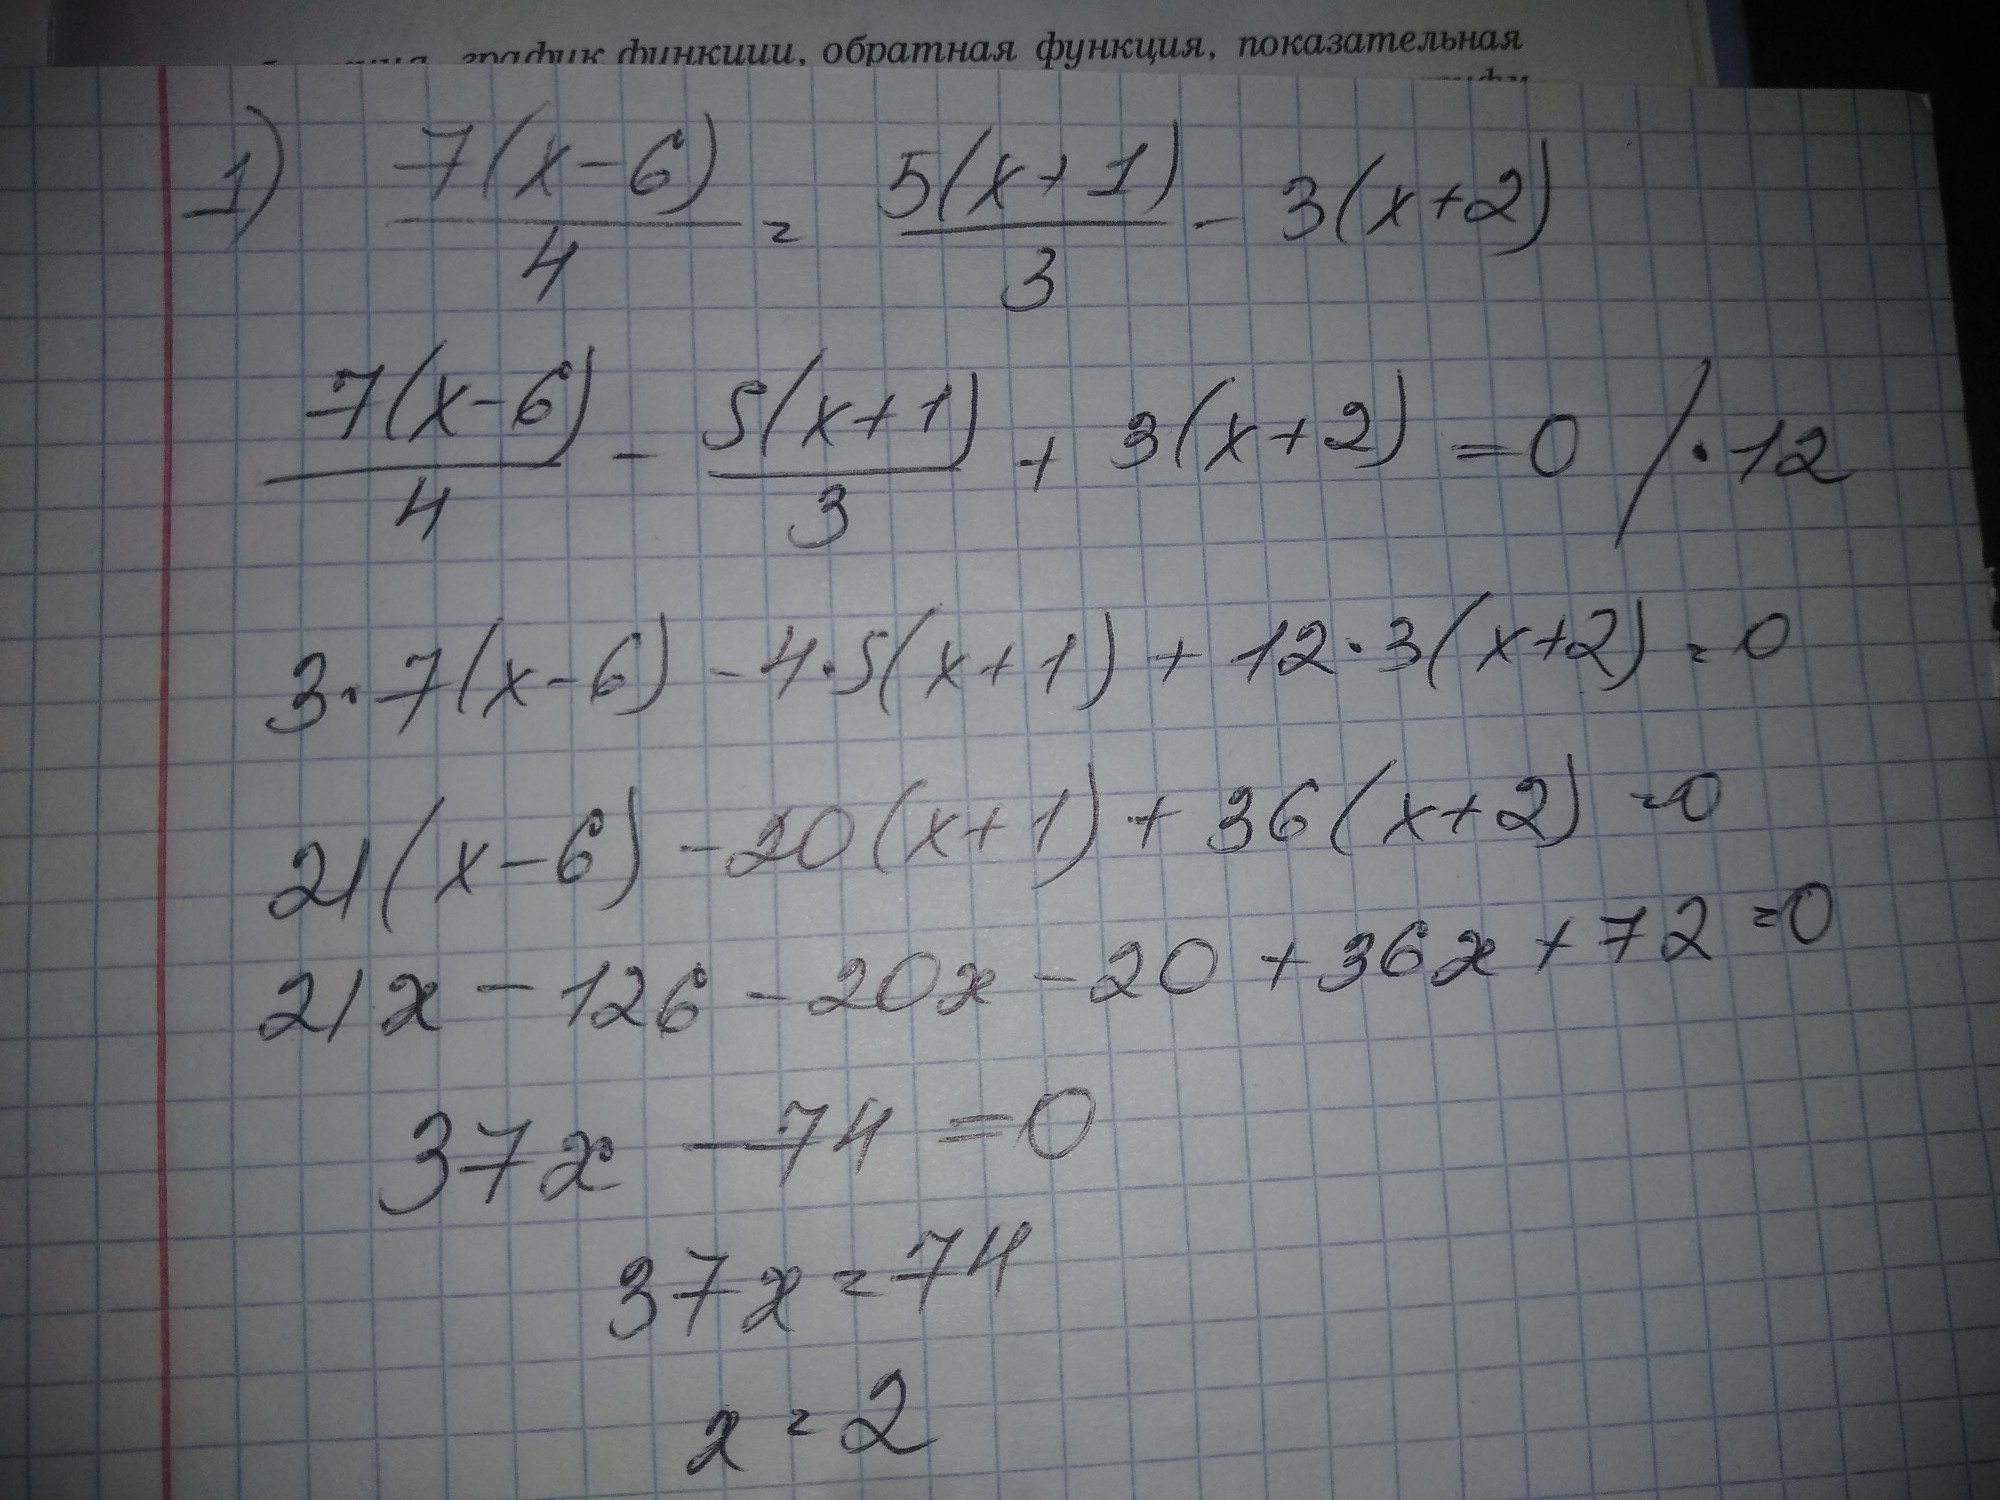 график функции, обратная функция, показательная
1) 7(x-6)/4 = 5(x+1)/3 - 3(x+2)
7(x-6)/4 - 5(x+1)/3 + 3(x+2) = 0 / · 12
3·7(x-6) - 4·5(x+1) + 12·3(x+2) = 0
21(x-6) - 20(x+1) + 36(x+2) = 0
21x - 126 - 20x - 20 + 36x + 72 = 0
37x - 74 = 0
37x = 74
x = 2